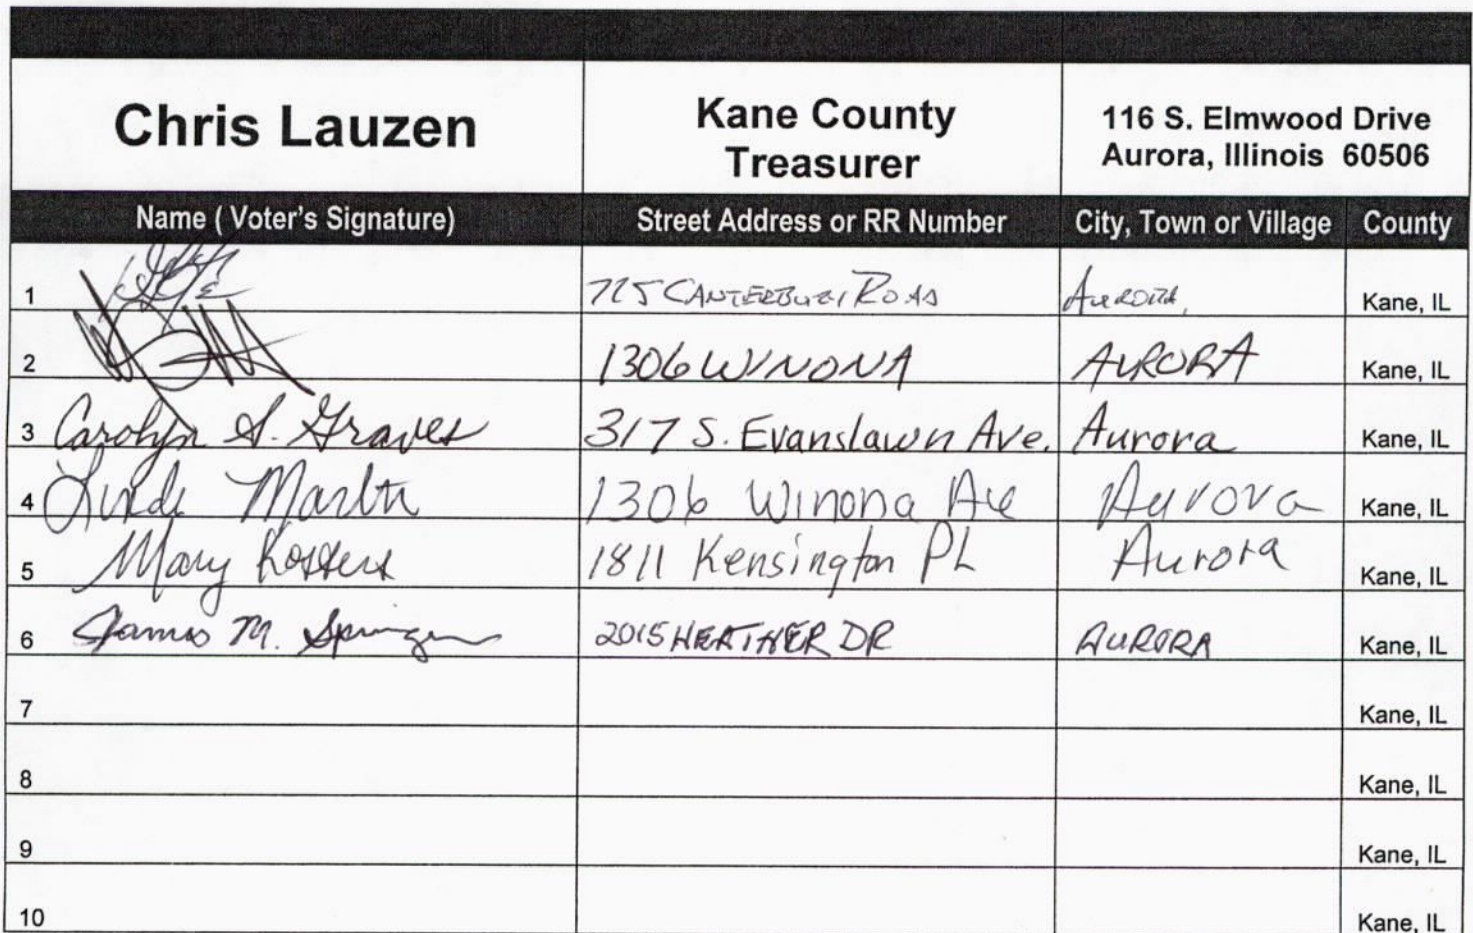 Chris Lauzen
Kane County
Treasurer
116 S. Elmwood Drive
Aurora, Illinois 60506
Name ( Voter's Signature) Street Address or RR Number City, Town or Village County
1 Road Aurora, Kane, IL
2 1306 WINONA AURORA Kane, IL
3 Carolyn S. Graves 317 S. Evanslawn Ave. Aurora Kane, IL
4 Linda Martin 1306 Winona Ave Aurora Kane, IL
5 Mary 1811 Kensington PL Aurora Kane, IL
6 James M. 2015 HEATHER DR AURORA Kane, IL
7 Kane, IL
8 Kane, IL
9 Kane, IL
10 Kane, IL